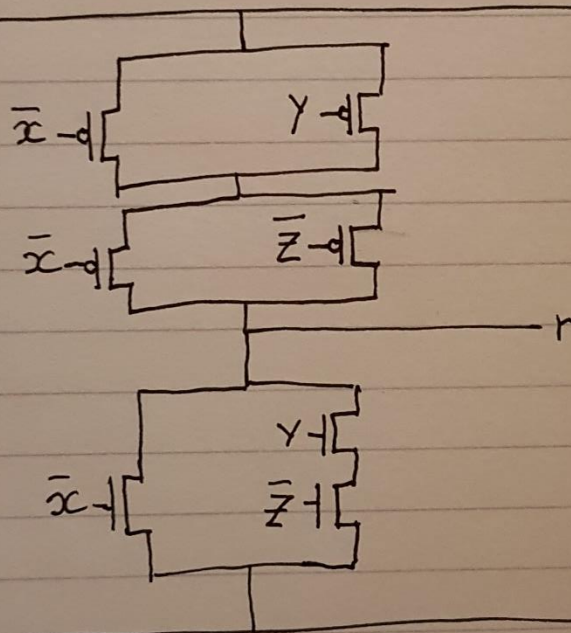 x̄ Y
x̄ z̄
r
Y
x̄ z̄